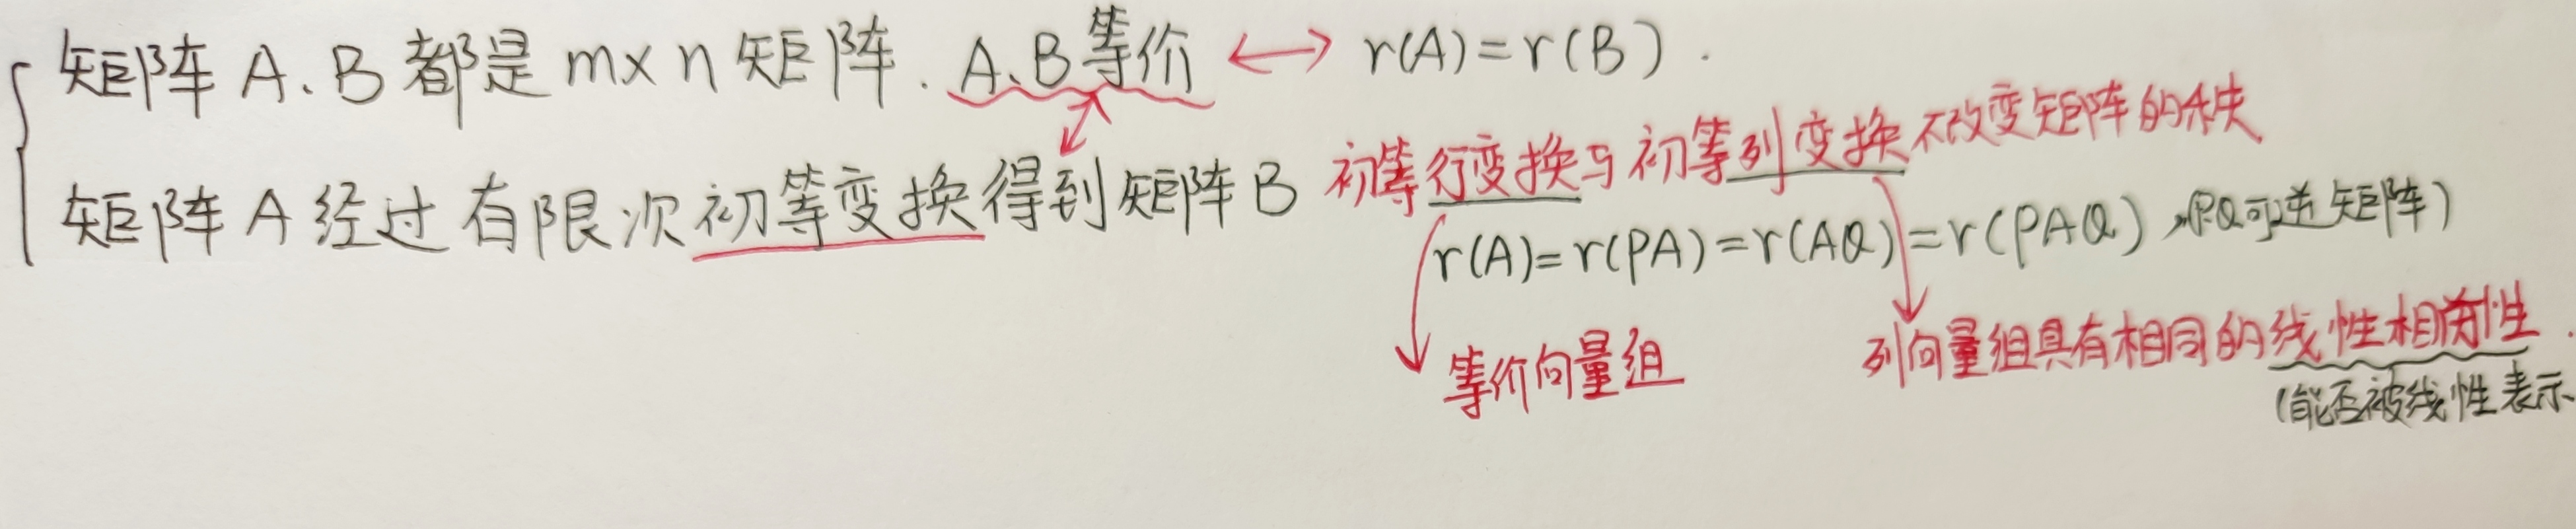 矩阵 A、B 都是 m×n 矩阵. A、B等价 ↔ r(A)=r(B).
矩阵 A 经过有限次初等变换得到矩阵 B
初等行变换与初等列变换不改变矩阵的秩
r(A)=r(PA)=r(AQ)=r(PAQ),(PQ可逆矩阵)
等价向量组
列向量组具有相同的线性相关性.
(能否被线性表示